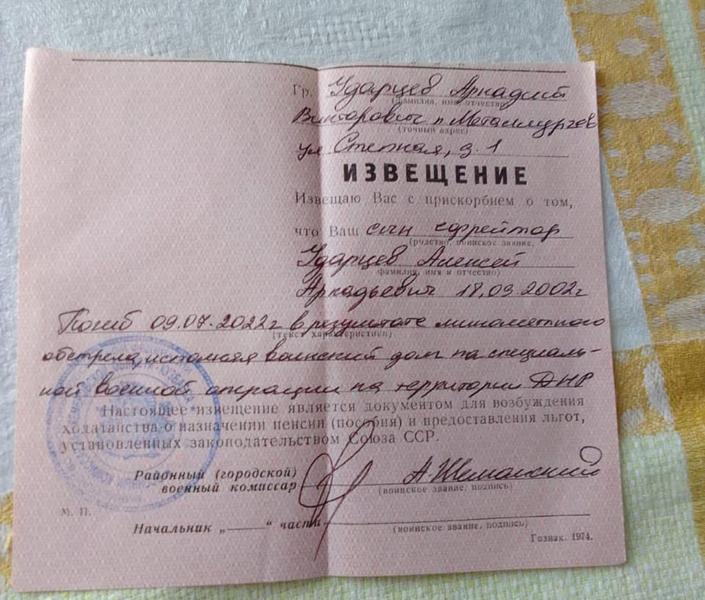 Гр. Ударцев Аркадий
(фамилия, имя, отчество)
Викторович п. Металлургов
(точный адрес)
ул Степная, д. 1
ИЗВЕЩЕНИЕ
Извещаю Вас с прискорбием о том,
что Ваш сын ефрейтор
(родство, воинское звание,
Ударцев Алексей
фамилия, имя и отчество)
Аркадьевич 18.03 2002г
Погиб 09.07.2022г в результате минометного
обстрела, исполняя воинский долг на специаль-
ной военной операции на территории ДНР
Настоящее извещение является документом для возбуждения
ходатайства о назначении пенсии (пособия) и предоставления льгот,
установленных законодательством Союза ССР.
Районный (городской)
военный комиссар
(воинское звание, подпись)
М. П.
Начальник „ “ части
(воинское звание, подпись)
Гознак. 1974.